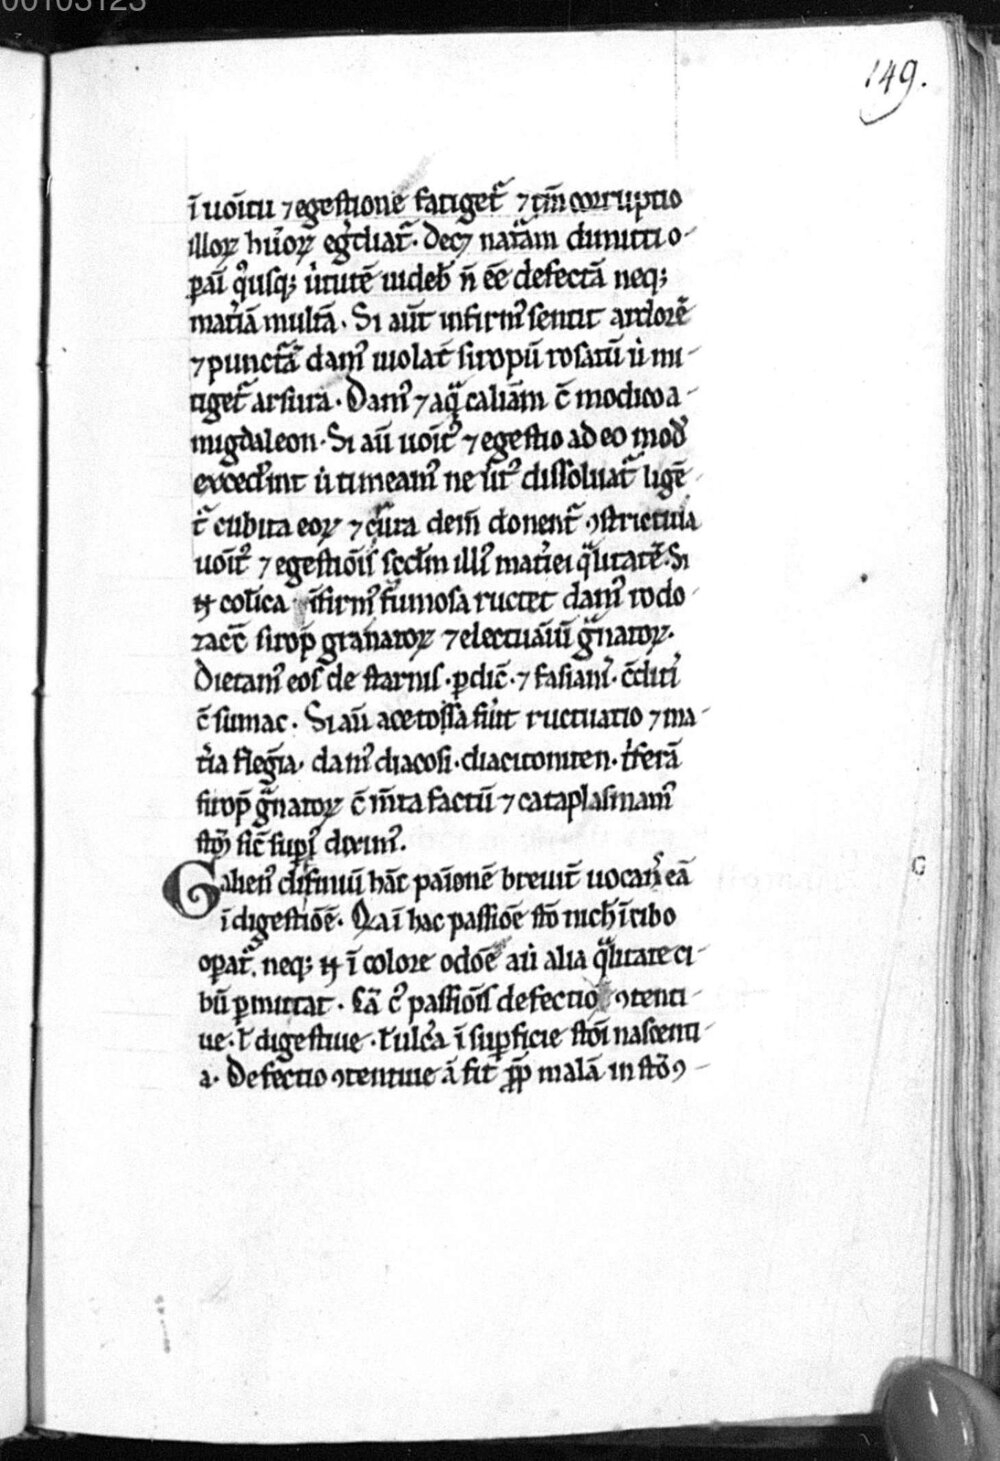 00103123
149.
ī uoītu ⁊ egestione fatiget᷑ ⁊ tm̄ corruptio
illoꝝ hu᷒oꝝ eg᷒diat᷑. Decꝫ nat᷑am dimitti o-
pai q᷒usq; u᷒tutē uideb᷒ n̄ ēe defectā neq;
mat᷒iā multā. Si aut̄ infirm᷒ sentit ardorē
⁊ punct᷑a dam᷒ uiolat̄ siropū rosatū u᷒ mi-
tiget᷑ arsura. Dam᷒ ⁊ aq̄ caliām c̄ modico a-
migdaleon. Si aū uoīt᷒ ⁊ egestio ad eo mod᷒
exced᷒int u᷒ timeam᷒ ne uirt᷒ dissoluat᷑ ligē
t᷑ cubita eoꝝ ⁊ c᷑ura dem̄ donent᷑ ꝯstrictiua
uoīt᷒ ⁊ egestiōīs scd̄m illi᷒ mat᷒iei q̄litatē. Si
colica īfirm᷒ fumosa ructet dam᷒ rodo
zacc̄ sirop̄ granatoꝝ ⁊ electuāiū gᷓnatoꝝ.
Dietam᷒ eos de starnis. ꝑdic̄. ⁊ fasiani᷒. c̄diti᷒
c̄ sumac. Si aū acetossa fiu᷒it ructuatio ⁊ ma-
t᷒ia flegᷓia. dam᷒ diacosi. diacitoniten. t᷒ferā
sirop̄ gᷓnatoꝝ c̄ m̄ta factū ⁊ cataplasmam᷒
stōꝫ sic̄ sup᷒i᷒ dixim᷒.
Galien᷒ difiniuī hāc paīonē breuit᷑ uocan᷒ eā
īdigestiōē. Q̄a ī hac passiōe stō nich᷒ ī cibo
oꝑat᷑. neq; ī colore odoē aū alia q̄litate ci-
bū ꝑmittat. Cā c̄ passiōīs defectio ꝯtenti-
ue. ł digestiue. ł ulc᷒a ī suꝑficie stōī nascenti-
a. Defectio ꝯtentiue ā fit ꝓp̄ malā in stōꝯ-